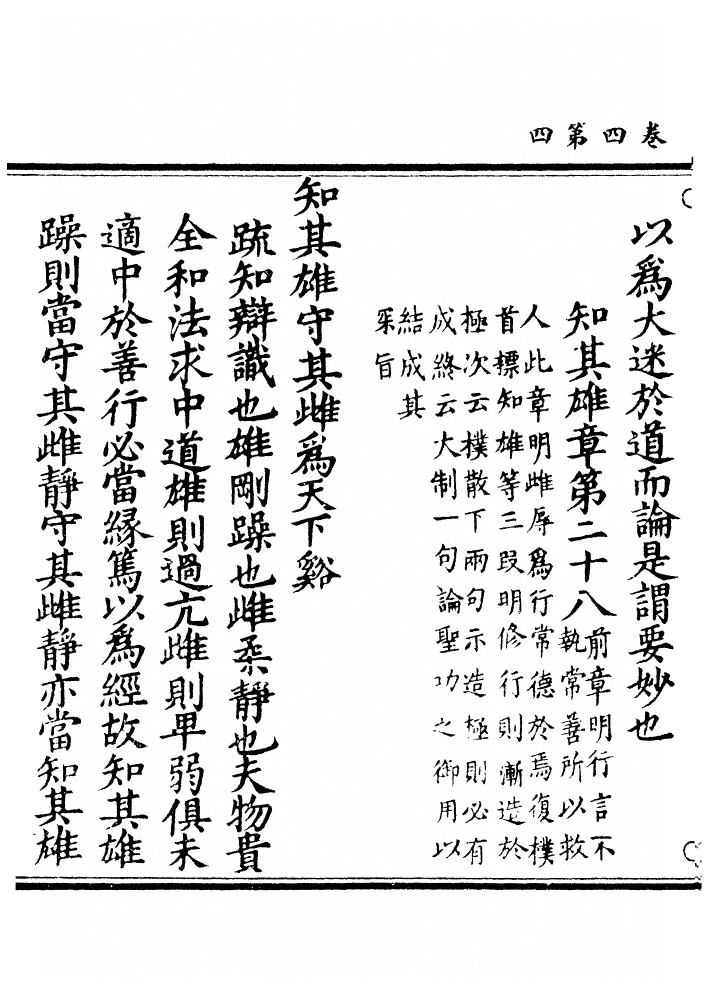 卷四第四
以爲大迷於道而論是謂要妙也
知其雄章第二十八前章明行言不
執常善所以救
人此章明雌辱爲行常德於焉復樸
首標知雄等三段明修行則漸造於
極次云樸散下兩句示造極則必有
成終云大制一句論聖功之御用以
結成其
罙旨
知其雄守其雌爲天下谿
疏知辯識也雄剛躁也雌柔靜也夫物貴
全和法求中道雄則過亢雌則卑弱俱未
適中於善行必當緣篤以爲經故知其雄
躁則當守其雌靜守其雌靜亦當知其雄